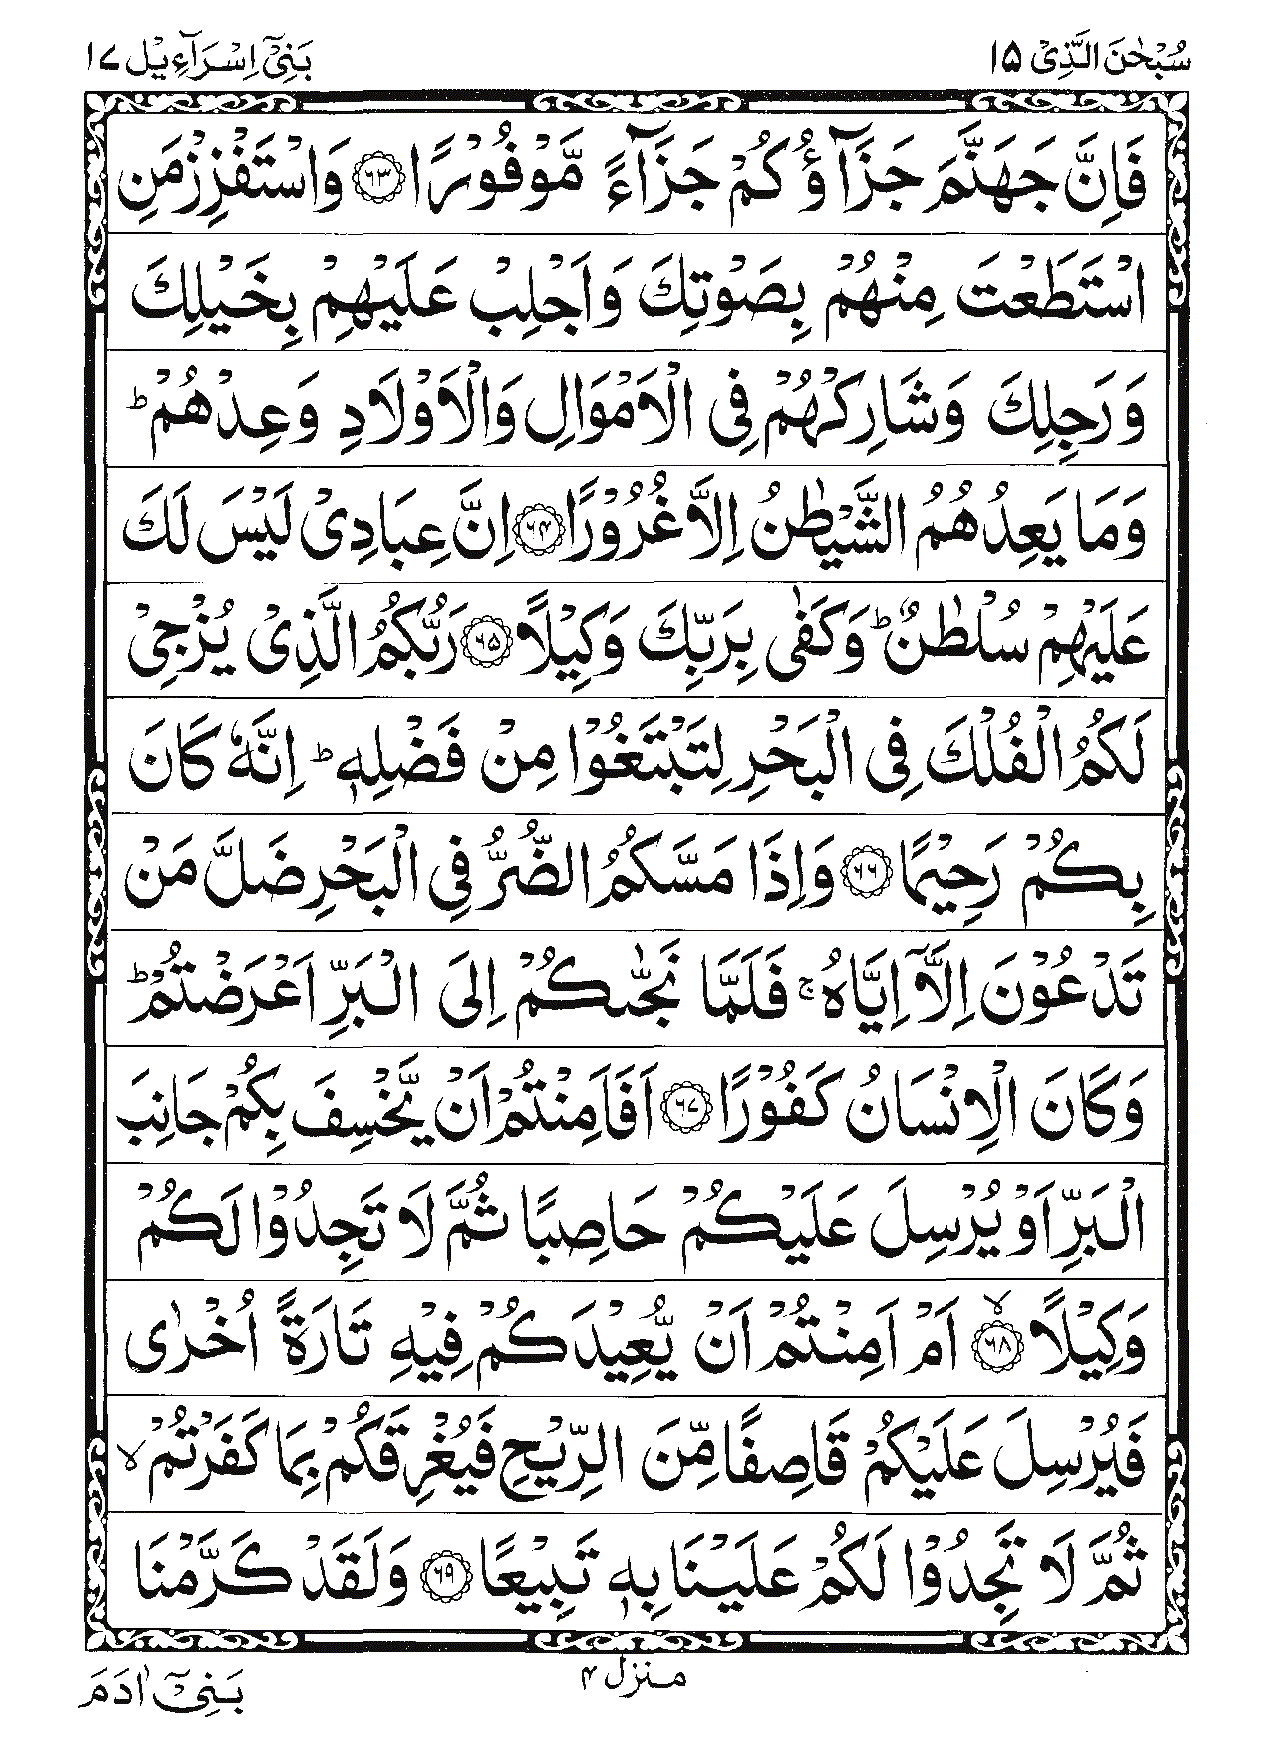 سُبْحٰنَ الَّذِیْ ۱۵
بَنِیْۤ اِسْرَآءِیْل ۱۷
فَاِنَّ جَهَنَّمَ جَزَآؤُكُمْ جَزَآءً مَّوْفُوْرًا ﴿۶۳﴾ وَاسْتَفْزِزْ مَنِ
اسْتَطَعْتَ مِنْهُمْ بِصَوْتِكَ وَاَجْلِبْ عَلَیْهِمْ بِخَیْلِكَ
وَرَجِلِكَ وَشَارِكْهُمْ فِی الْاَمْوَالِ وَالْاَوْلَادِ وَعِدْهُمْ ؕ
وَمَا یَعِدُهُمُ الشَّیْطٰنُ اِلَّا غُرُوْرًا ﴿۶۴﴾ اِنَّ عِبَادِیْ لَیْسَ لَكَ
عَلَیْهِمْ سُلْطٰنٌ ؕ وَكَفٰی بِرَبِّكَ وَكِیْلًا ﴿۶۵﴾ رَبُّكُمُ الَّذِیْ یُزْجِیْ
لَكُمُ الْفُلْكَ فِی الْبَحْرِ لِتَبْتَغُوْا مِنْ فَضْلِهٖ ؕ اِنَّهٗ كَانَ
بِكُمْ رَحِیْمًا ﴿۶۶﴾ وَاِذَا مَسَّكُمُ الضُّرُّ فِی الْبَحْرِ ضَلَّ مَنْ
تَدْعُوْنَ اِلَّاۤ اِیَّاهُ ۚ فَلَمَّا نَجّٰىكُمْ اِلَی الْبَرِّ اَعْرَضْتُمْ ؕ
وَكَانَ الْاِنْسَانُ كَفُوْرًا ﴿۶۷﴾ اَفَاَمِنْتُمْ اَنْ یَّخْسِفَ بِكُمْ جَانِبَ
الْبَرِّ اَوْ یُرْسِلَ عَلَیْكُمْ حَاصِبًا ثُمَّ لَا تَجِدُوْا لَكُمْ
وَكِیْلًا ﴿۶۸﴾ۙ اَمْ اَمِنْتُمْ اَنْ یُّعِیْدَكُمْ فِیْهِ تَارَةً اُخْرٰی
فَیُرْسِلَ عَلَیْكُمْ قَاصِفًا مِّنَ الرِّیْحِ فَیُغْرِقَكُمْ بِمَا كَفَرْتُمْ ۙ
ثُمَّ لَا تَجِدُوْا لَكُمْ عَلَیْنَا بِهٖ تَبِیْعًا ﴿۶۹﴾ وَلَقَدْ كَرَّمْنَا
منزل ۴
بَنِیْۤ اٰدَمَ